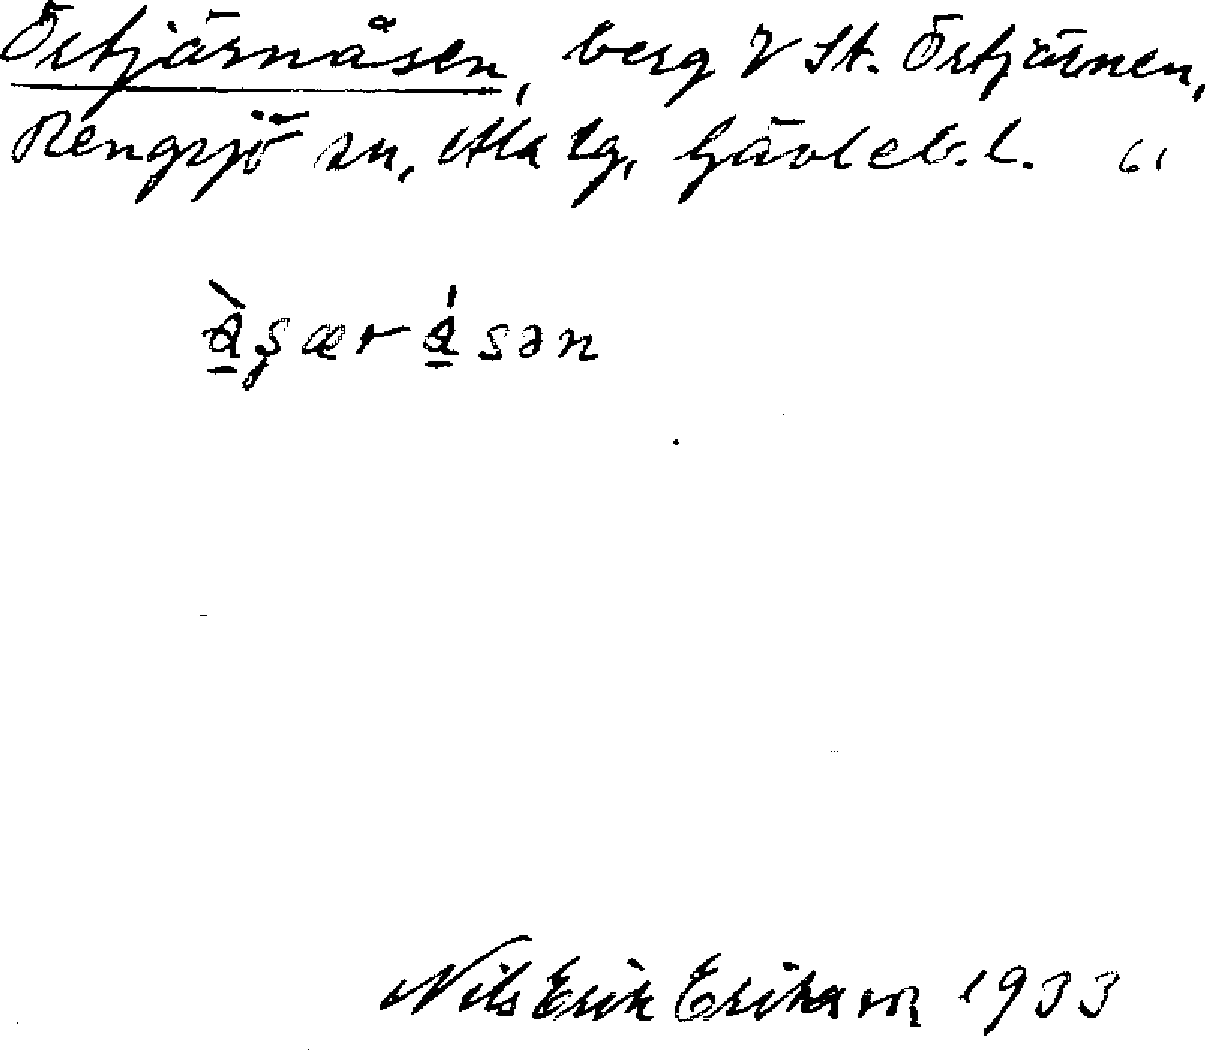 Örtjärnåsen, berg V St. Örtjärnen,
Rengsjö sn, Ala tg, Gävleb. l. 61
å̱̀şærǻ̱sən
Nils Erik Erikson 1933